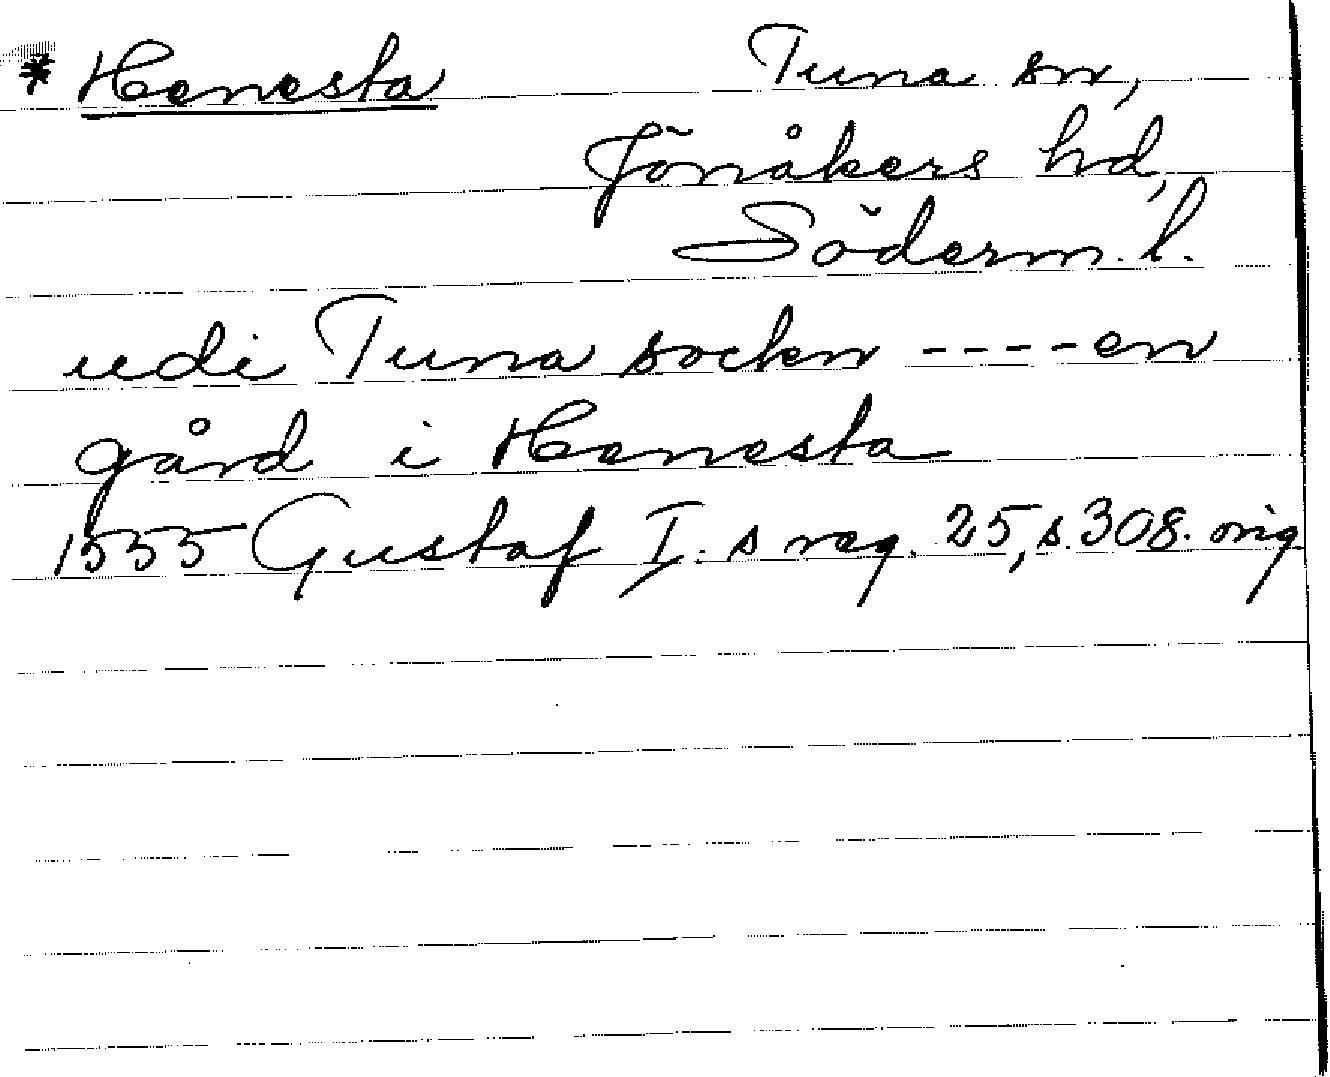 * Henesta Tuna sn,
Jönåkers hd,
Söderm. l.
udi Tuna sockn ---- en
gård i Henesta
1555 Gustaf I. s reg. 25, s. 308. orig.